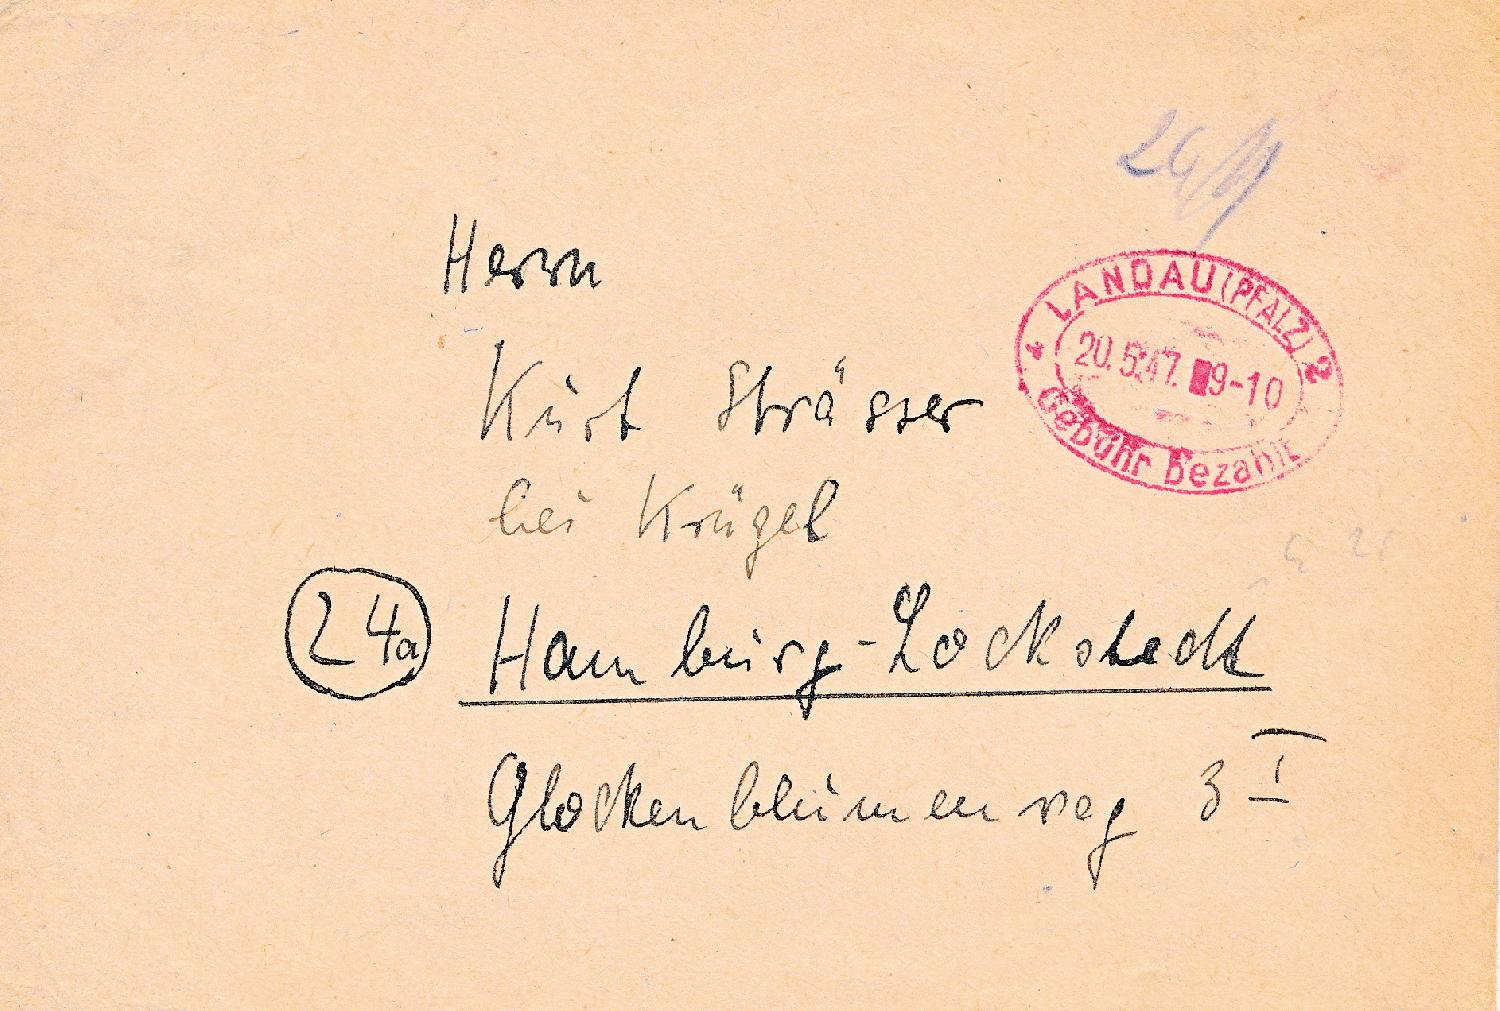 Herrn
Kurt Strässer
bei Krügel
24a Hamburg-Lockstedt
Glockenblumenweg 3 I
LANDAU (PFALZ) 2
20.5.47. 9-10
Gebühr bezahlt